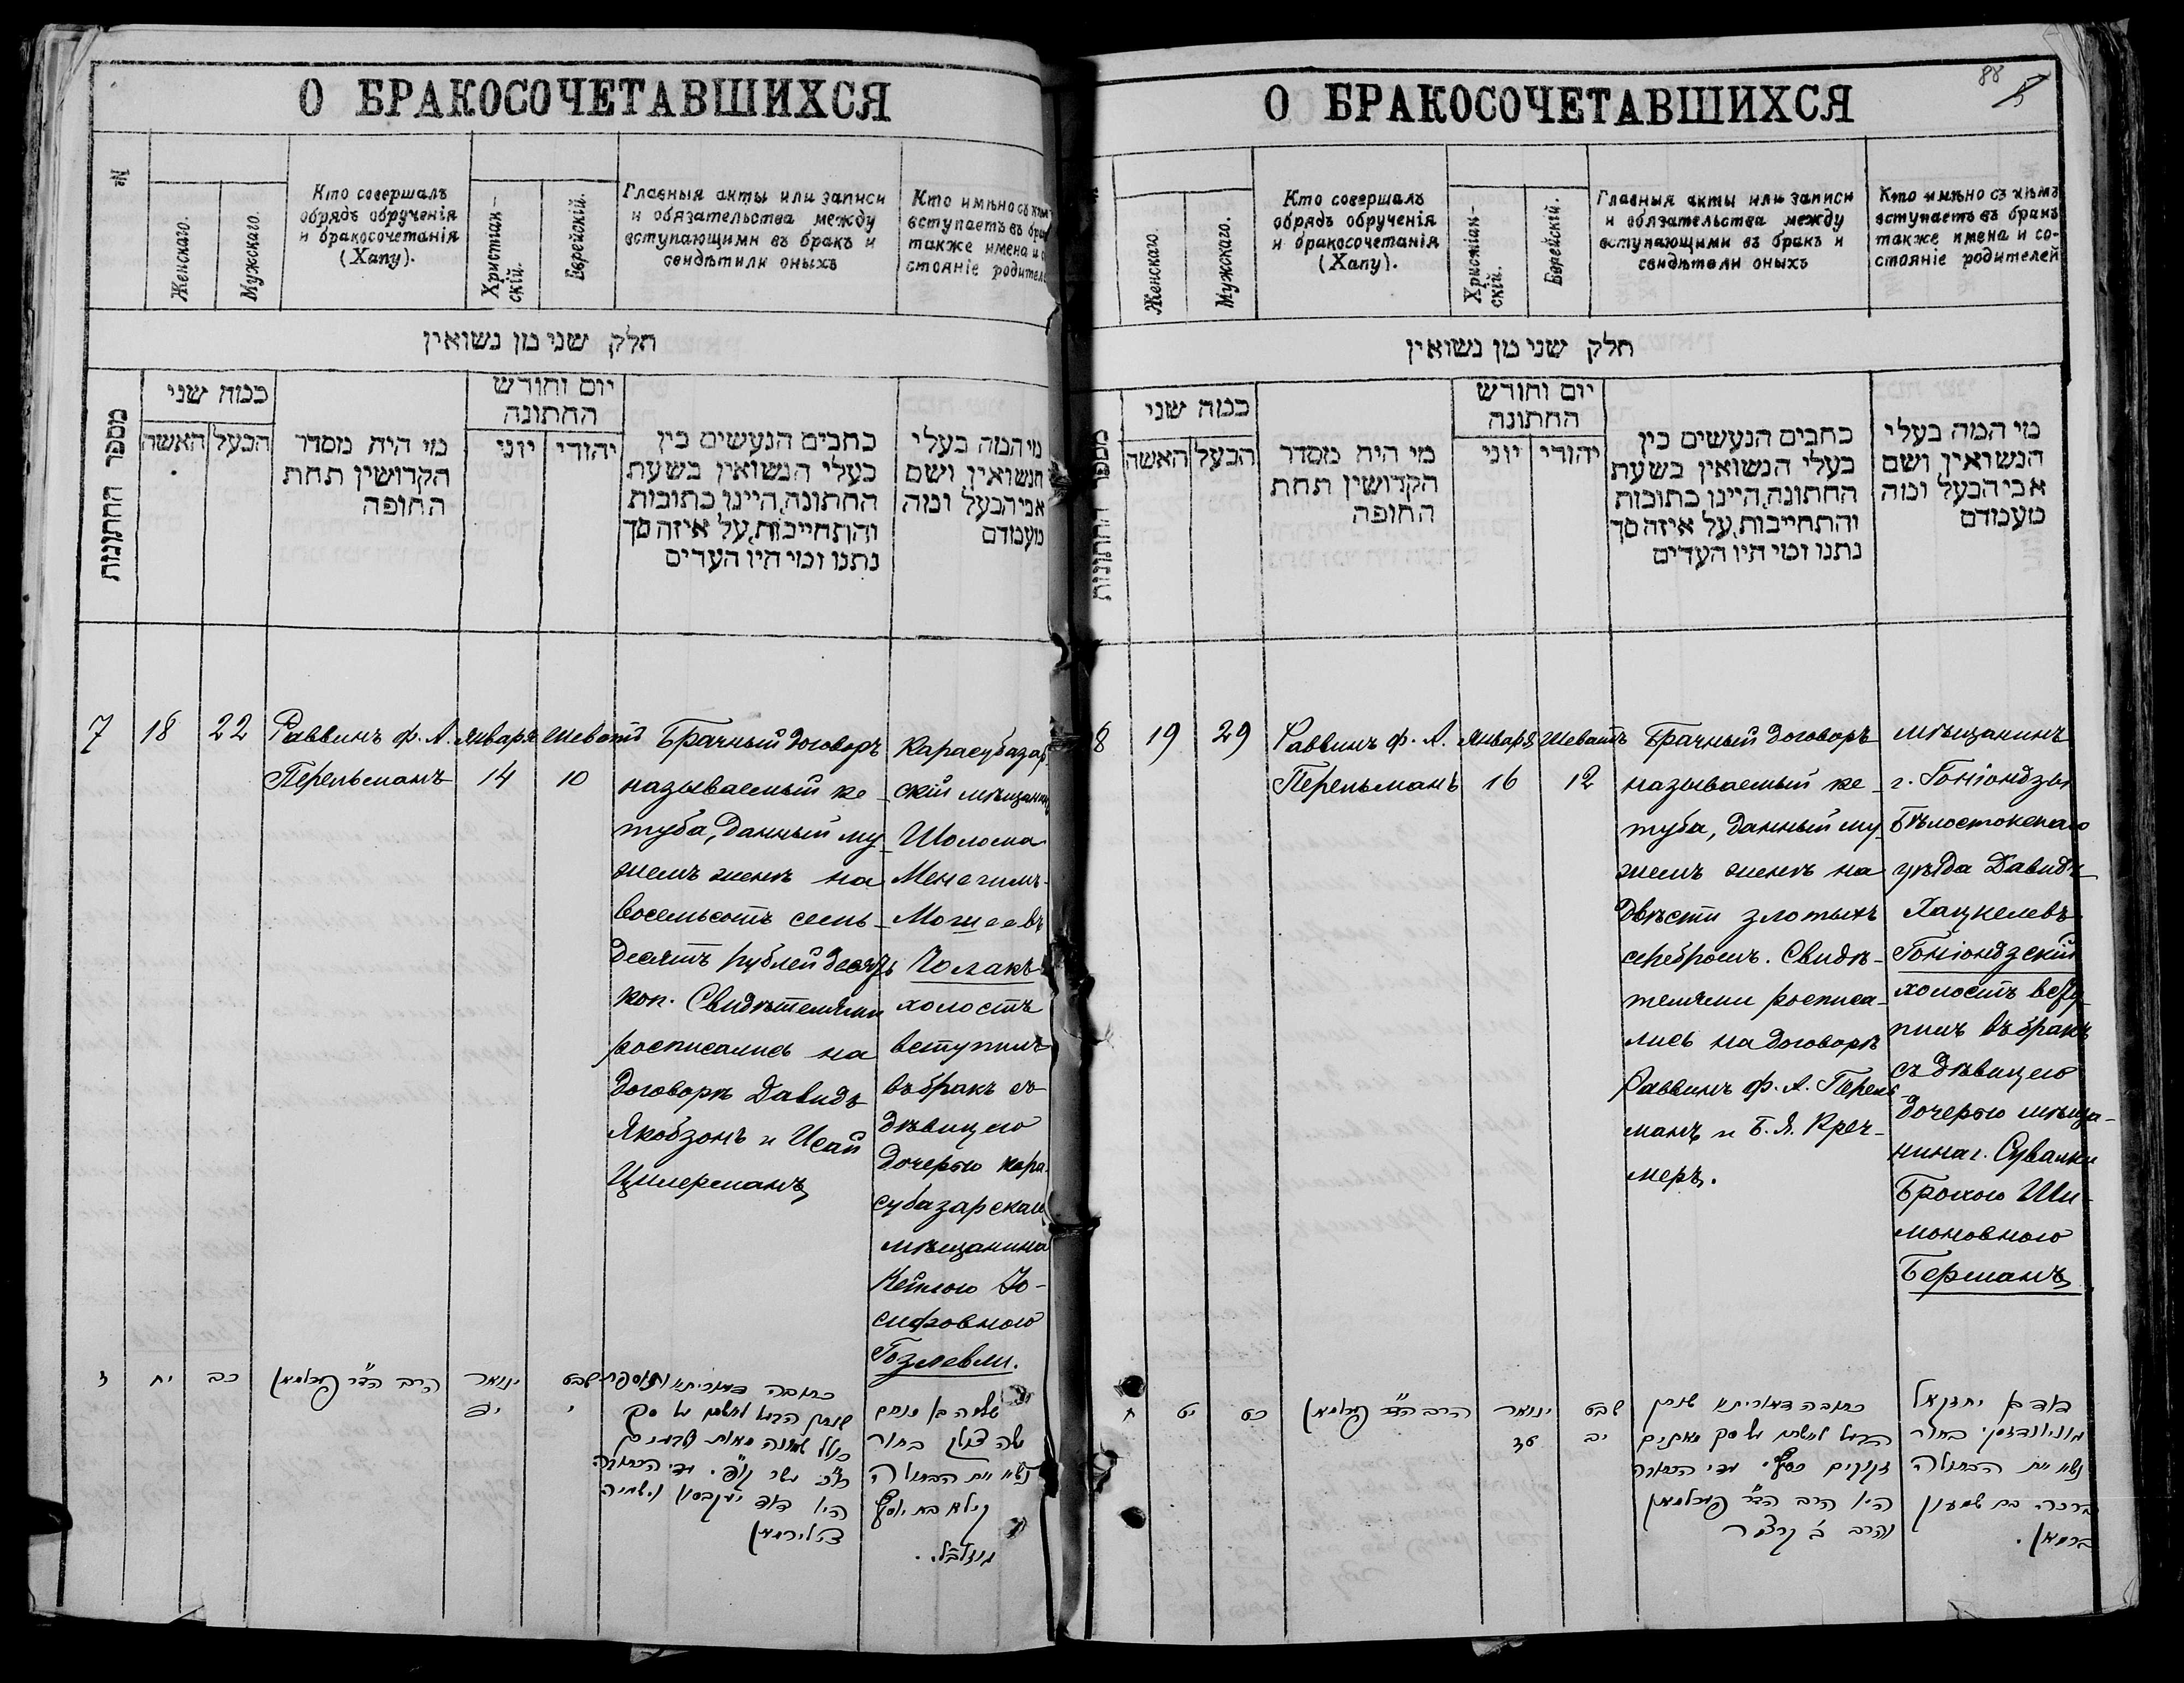 О БРАКОСОЧЕТАВШИХСЯ
№
Женскаго.
Мужскаго.
Кто совершалъ
обрядъ обрученія
и бракосочетанія
(Хапу).
Христіан-
скій.
Еврейскій.
Главныя акты или записи
и обязательства между
вступающими въ бракъ и
свидѣтили оныхъ
Кто имѣно съ кѣмъ
вступаетъ въ бракъ
также имена и со
стояніе родителей
חלק שני מן נשואין
מספר החתונות
כמה שני
האשה
הבעל
מי היה מסדר
הקדושין תחת
החופה
יום וחודש
החתונה
יוני
יהודי
כתבים הנעשים בין
בעלי הנשואין בשעת
החתונה, היינו כתובות
והתחייבות, על איזה סך
נתנו ומי היו העדים
מי המה בעלי
הנשואין ושם
אבי הבעל ומה
מעמדם
7
18
22
Раввинъ Ф. А.
Перельманъ
Январь
14
Шеватъ
10
Брачный договоръ
называемый ке-
туба, данный му-
жемъ женѣ на
восемьсотъ семь-
десятъ рублей десять
коп. Свидѣтелями
росписались на
договорѣ Давидъ
Якобзонъ и Исай
Цилерманъ
Карасубазар-
скій мѣщанинъ
Шолома
Менагимъ-
Мошеевъ
Чолакъ
холостъ
вступилъ
въ бракъ съ
дѣвицею
дочерью кара-
субазарскаго
мѣщанина
Кейлою Іо-
сифовною
Гозлевли.
ז
יח
כב
הרב הד"ר פערלמאן
ינואר
יד
שבט
י
כתובה דאורייתא ותוספת
О БРАКОСОЧЕТАВШИХСЯ
88
Женскаго.
Мужскаго.
Кто совершалъ
обрядъ обрученія
и бракосочетанія
(Хапу).
Христіан-
скій.
Еврейскій.
Главныя акты или записи
и обязательства между
вступающими въ бракъ и
свидѣтели оныхъ
Кто имѣно съ кѣмъ
вступаетъ въ бракъ
также имена и со-
стояніе родителей
חלק שני מן נשואין
מספר החתונות
כמה שני
האשה
הבעל
מי היה מסדר
הקדושין תחת
החופה
יום וחודש
החתונה
יוני
יהודי
כתבים הנעשים בין
בעלי הנשואין בשעת
החתונה, היינו כתובות
והתחייבות, על איזה סך
נתנו ומי היו העדים
מי המה בעלי
הנשואין ושם
אבי הבעל ומה
מעמדם
8
19
29
Раввинъ Ф. А.
Перельманъ
Январь
16
Шеватъ
12
Брачный договоръ
называемый ке-
туба, данный му-
жемъ женѣ на
двѣсти злотыхъ
серебромъ. Свидѣ-
телями росписа-
лись на договорѣ
Раввинъ Ф. А. Перель-
манъ и Б. Я. Креч-
меръ.
мѣщанинъ
г. Гоніондзы
Бѣлостокскаго
уѣзда Давидъ
Хацкелевъ
Гоніондзскій
холостъ всту-
пилъ въ бракъ
съ дѣвицею
дочерью мѣща-
нина г. Сувалки
Брохою Ши-
моновною
Берманъ
ח
יט
כט
הרב הד"ר פערלמאן
ינואר
טז
שבט
יב
כתובה דאורייתא שנתן
זקוקים כסף. עדי הכתובה
היו הרב הד"ר פערלמאן
והרב ב קרצמר
דוד בן יחזקאל
נשא את הבתולה
ברכה בת שמעון
ברמאן.